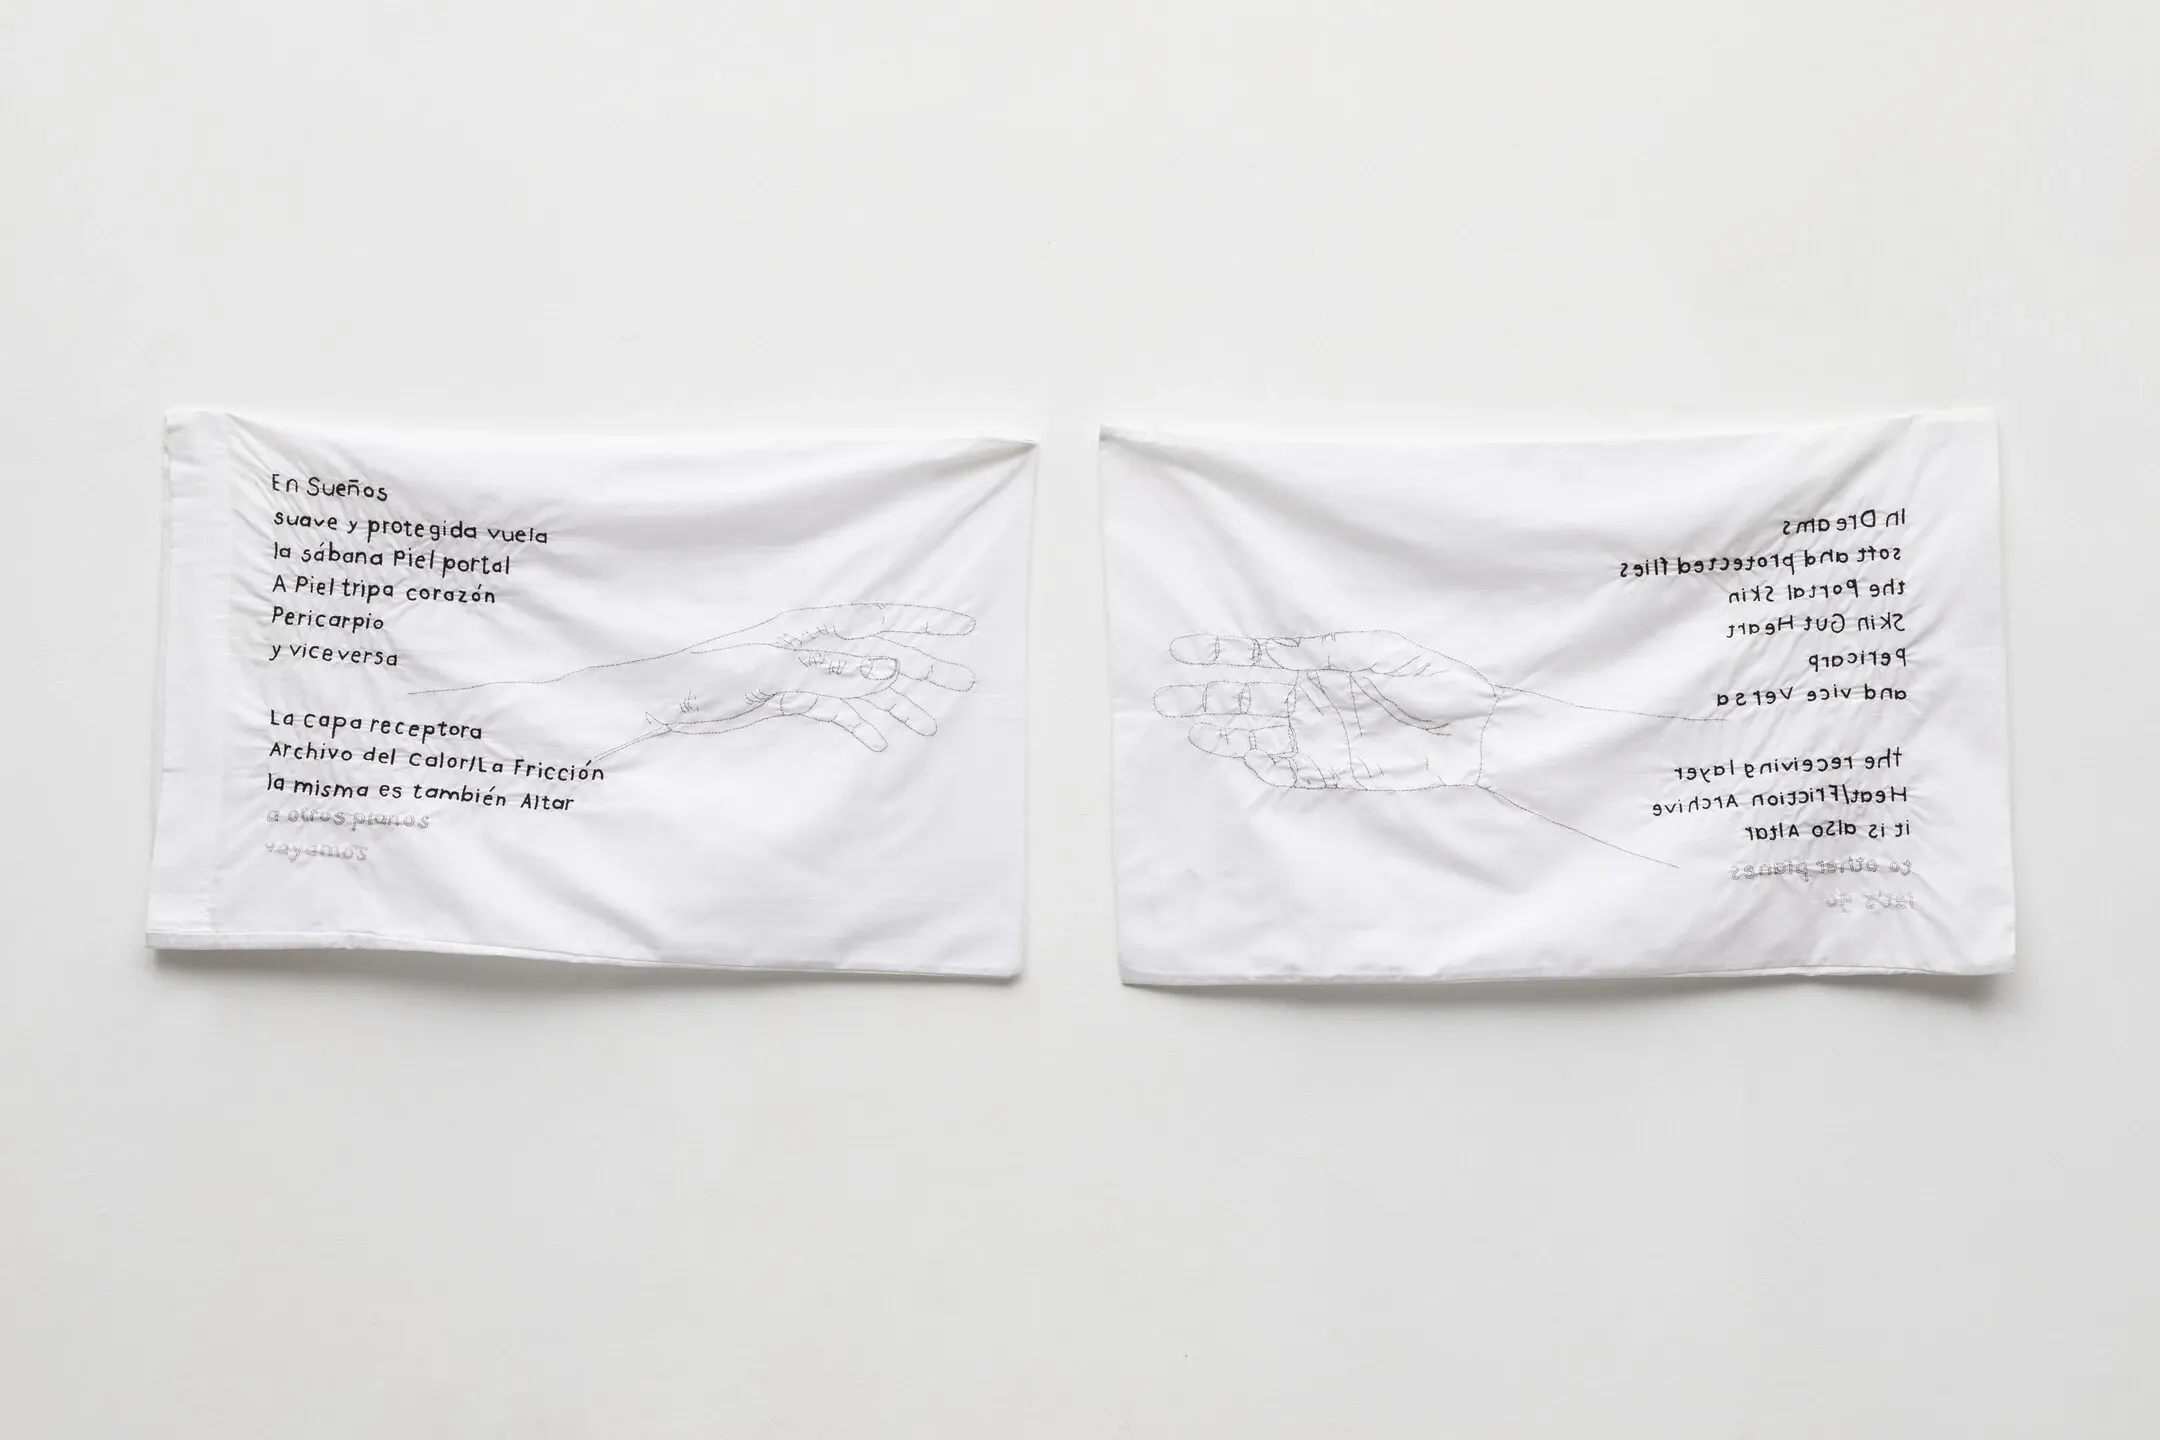 En Sueños
suave y protegida vuela
la sábana Piel portal
A Piel tripa corazón
Pericarpio
y viceversa
La capa receptora
Archivo del Calor/La Fricción
la misma es también Altar
a otros planos
vayamos
In Dreams
soft and protected flies
the Portal Skin
Skin Gut Heart
Pericarp
and vice versa
the receiving layer
Heat/Friction Archive
it is also Altar
to other planes
let's go